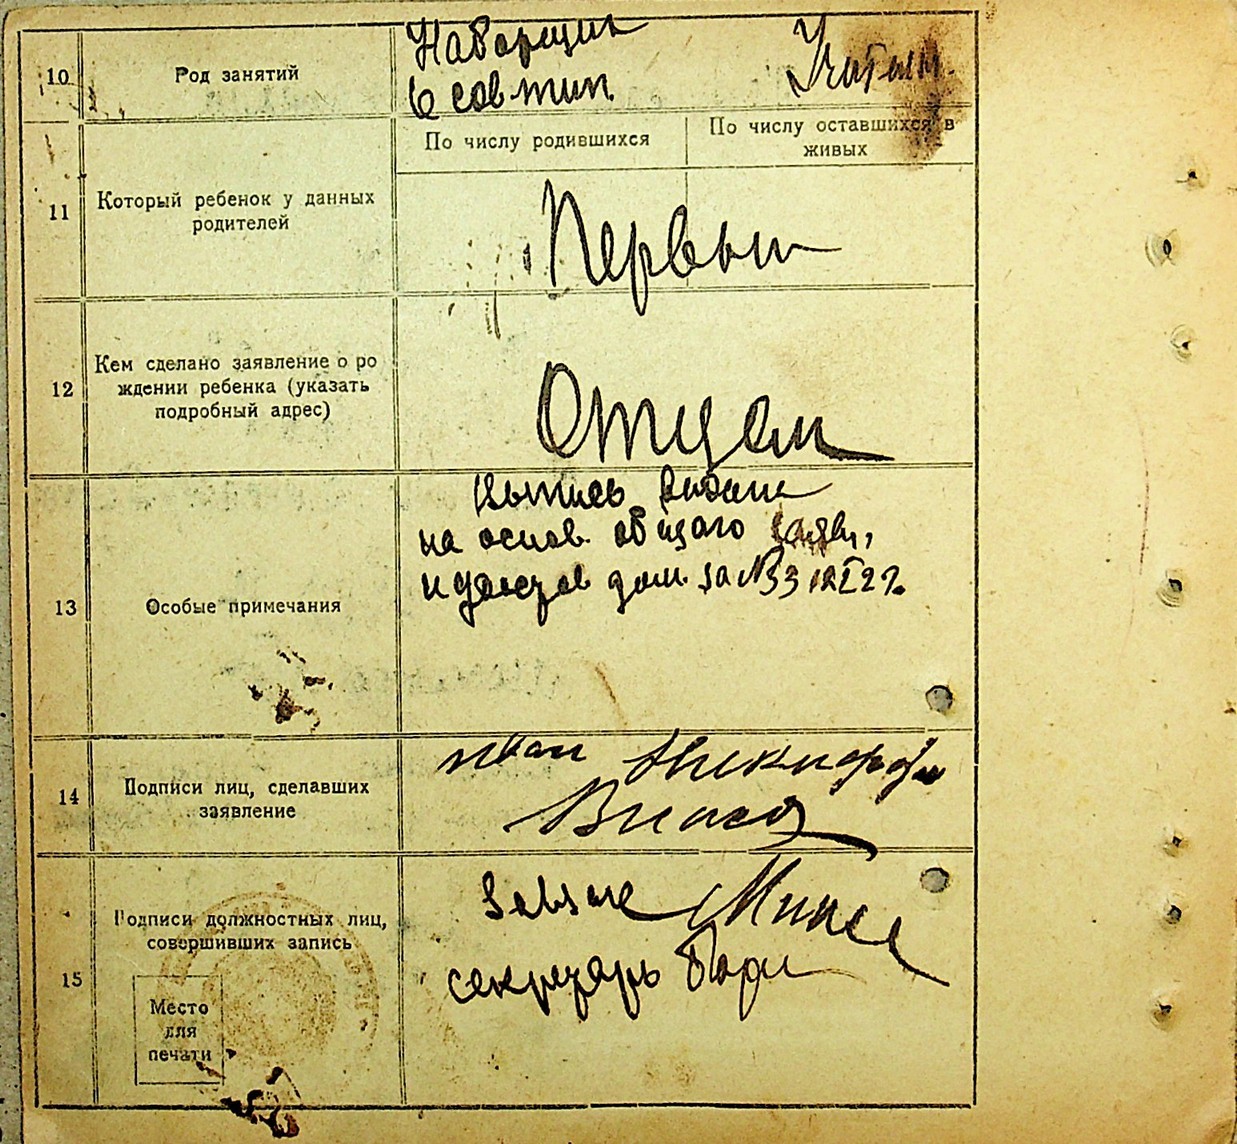 10 Род занятий Наборщик Учитель.
в совтип.
По числу родившихся По числу оставшихся в
живых
11 Который ребенок у данных
родителей
Первый
12 Кем сделано заявление о ро
ждении ребенка (указать
подробный адрес)
Отцом
13 Особые примечания
Выпись выдана
на основ. общаго заявл,
и удостов дом. за №33
14 Подписи лиц, сделавших
заявление
Иван Никифоров
15 Подписи должностных лиц,
совершивших запись
Место
для
печати
Завзаг
секретарь